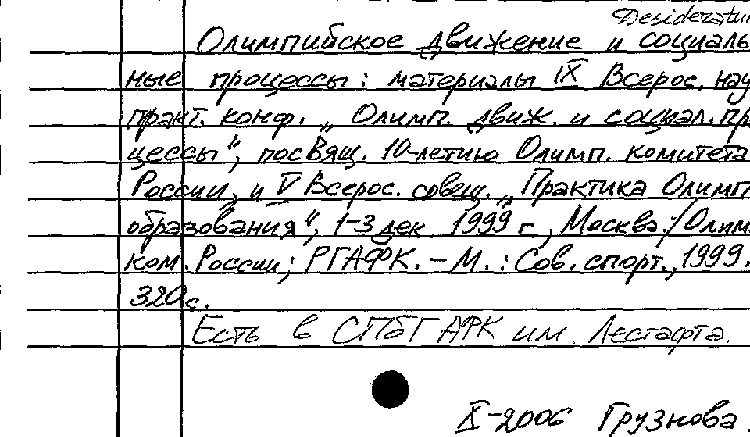 Desideratum
Олимпийское движение и социаль-
ные процессы: материалы IX Всерос. науч.
практ. конф. „Олимп. движ. и социал. про-
цессы", посвящ. 10-летию Олимп. комитета
России, и V Всерос. совещ. „Практика Олимп.
образования", 1-3 дек. 1999 г., Москва / Олим.
ком. России; РГАФК. - М.: Сов. спорт, 1999.
320 с.
Есть в СПбГАФК им. Лесгафта.
X-2006 Грузнова